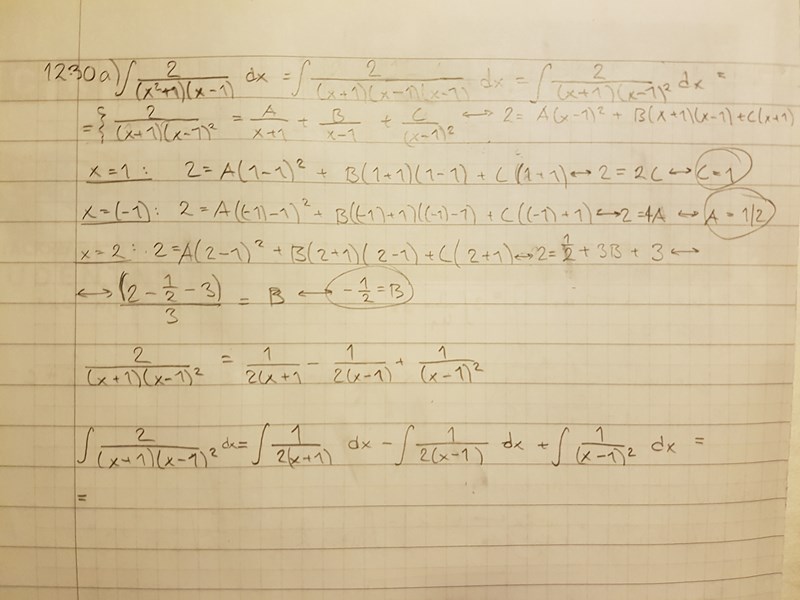 1230a) ∫ 2/((x²+1)(x-1)) dx = ∫ 2/((x+1)(x-1)(x-1)) dx = ∫ 2/((x+1)(x-1)²) dx =
= { 2/((x+1)(x-1)²) = A/(x+1) + B/(x-1) + C/(x-1)² ↔ 2 = A(x-1)² + B(x+1)(x-1) + C(x+1)
x=1: 2 = A(1-1)² + B(1+1)(1-1) + C(1+1) ↔ 2 = 2C ↔ C=1
x=(-1): 2 = A((-1)-1)² + B((-1)+1)((-1)-1) + C((-1)+1) ↔ 2=4A ↔ A = 1/2
x=2: 2=A(2-1)² + B(2+1)(2-1) + C(2+1) ↔ 2= 1/2 + 3B + 3 ↔
↔ (2 - 1/2 - 3)/3 = B ↔ -1/2 = B
2/((x+1)(x-1)²) = 1/(2(x+1) - 1/(2(x-1)) + 1/(x-1)²
∫ 2/((x+1)(x-1)²) dx = ∫ 1/(2(x+1)) dx - ∫ 1/(2(x-1)) dx + ∫ 1/(x-1)² dx =
=